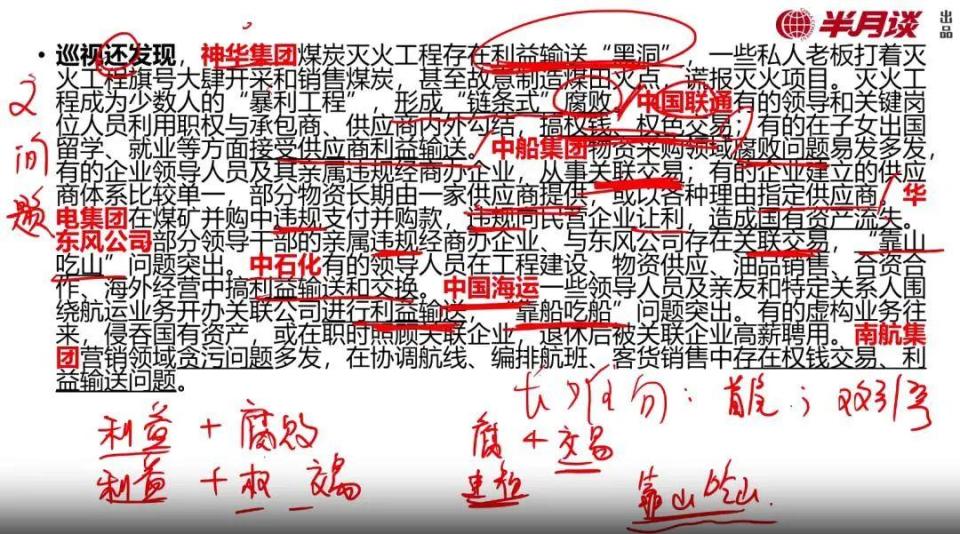 半月谈 出品
• 巡视还发现，神华集团煤炭灭火工程存在利益输送“黑洞”，一些私人老板打着灭
火工程旗号大肆开采和销售煤炭，甚至故意制造煤田火点，谎报灭火项目。灭火工
程成为少数人的“暴利工程”，形成“链条式”腐败。中国联通有的领导和关键岗
位人员利用职权与承包商、供应商内外勾结，搞权钱、权色交易；有的在子女出国
留学、就业等方面接受供应商利益输送。中船集团物资采购领域腐败问题易发多发，
有的企业领导人员及其亲属违规经商办企业，从事关联交易；有的企业建立的供应
商体系比较单一，部分物资长期由一家供应商提供，或以各种理由指定供应商。华
电集团在煤矿并购中违规支付并购款，违规向民营企业让利，造成国有资产流失。
东风公司部分领导干部的亲属违规经商办企业、与东风公司存在关联交易，“靠山
吃山”问题突出。中石化有的领导人员在工程建设、物资供应、油品销售、合资合
作、海外经营中搞利益输送和交换。中国海运一些领导人员及亲友和特定关系人围
绕航运业务开办关联公司进行利益输送，“靠船吃船”问题突出。有的虚构业务往
来，侵吞国有资产，或在职时照顾关联企业，退休后被关联企业高薪聘用。南航集
团营销领域贪污问题多发，在协调航线、编排航班、客货销售中存在权钱交易、利
益输送问题。
问题
长难句：首尾；双引号
利益 + 腐败
腐 + 交易
利益 + 权 交易
靠山吃山